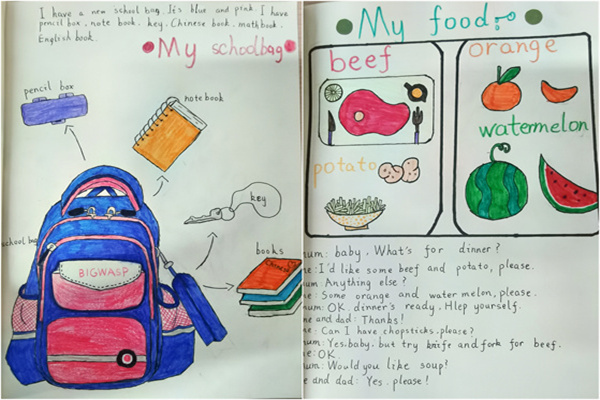 I have a new school bag. It's blue and pink. I have
pencil box. note book. key. Chinese book. mathbook.
English book.
My schoolbag
pencil box
notebook
key
school bag
books
Chinese
BIGWASP
My food
beef
orange
watermelon
potato
mum: baby. What's for dinner?
me: I'd like some beef and potato, please.
mum: Anything else?
me: Some orange and water melon, please.
mum: OK. dinner's ready. Hlep yourself.
me and dad: Thanks!
me: Can I have chopsticks. please?
mum: Yes. baby. but try knife and fork for beef.
me: OK.
mum: Would you like soup?
me and dad: Yes. please!